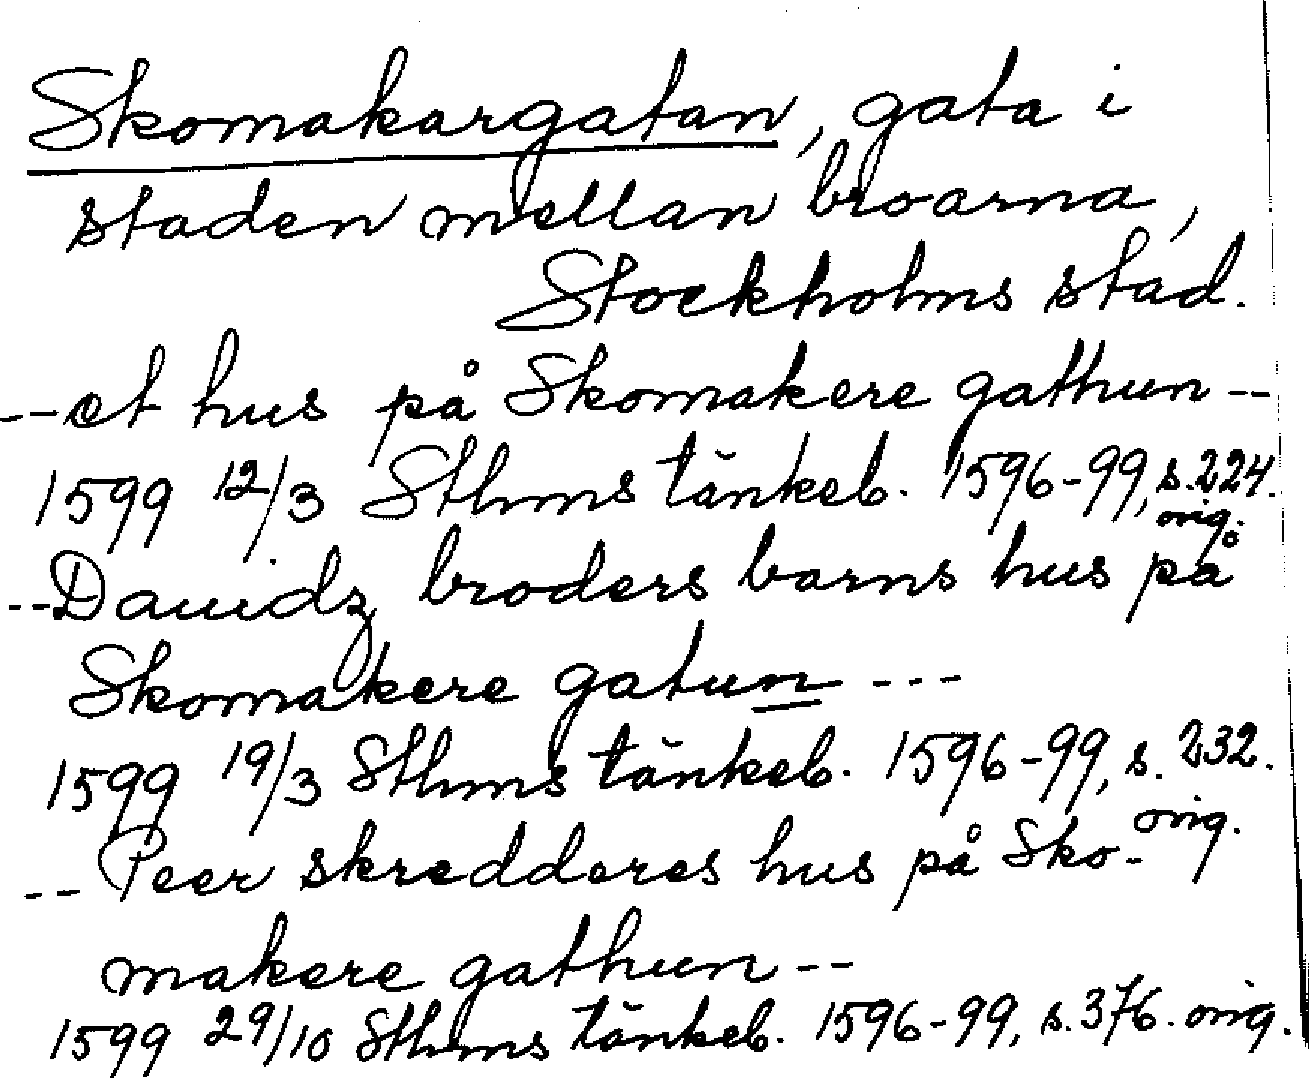 Skomakargatan, gata i
staden mellan broarna,
Stockholms stad.
--et hus på Skomakere gathun--
1599 12/3 Sthms tänkeb. 1596-99, s. 224.
orig.
--Dauidz broders barns hus på
Skomakere gatun ---
1599 19/3 Sthms tänkeb. 1596-99, s. 232.
orig.
-- Peer skredderes hus på Sko-
makere gathun--
1599 29/10 Sthms tänkeb. 1596-99, s. 376. orig.